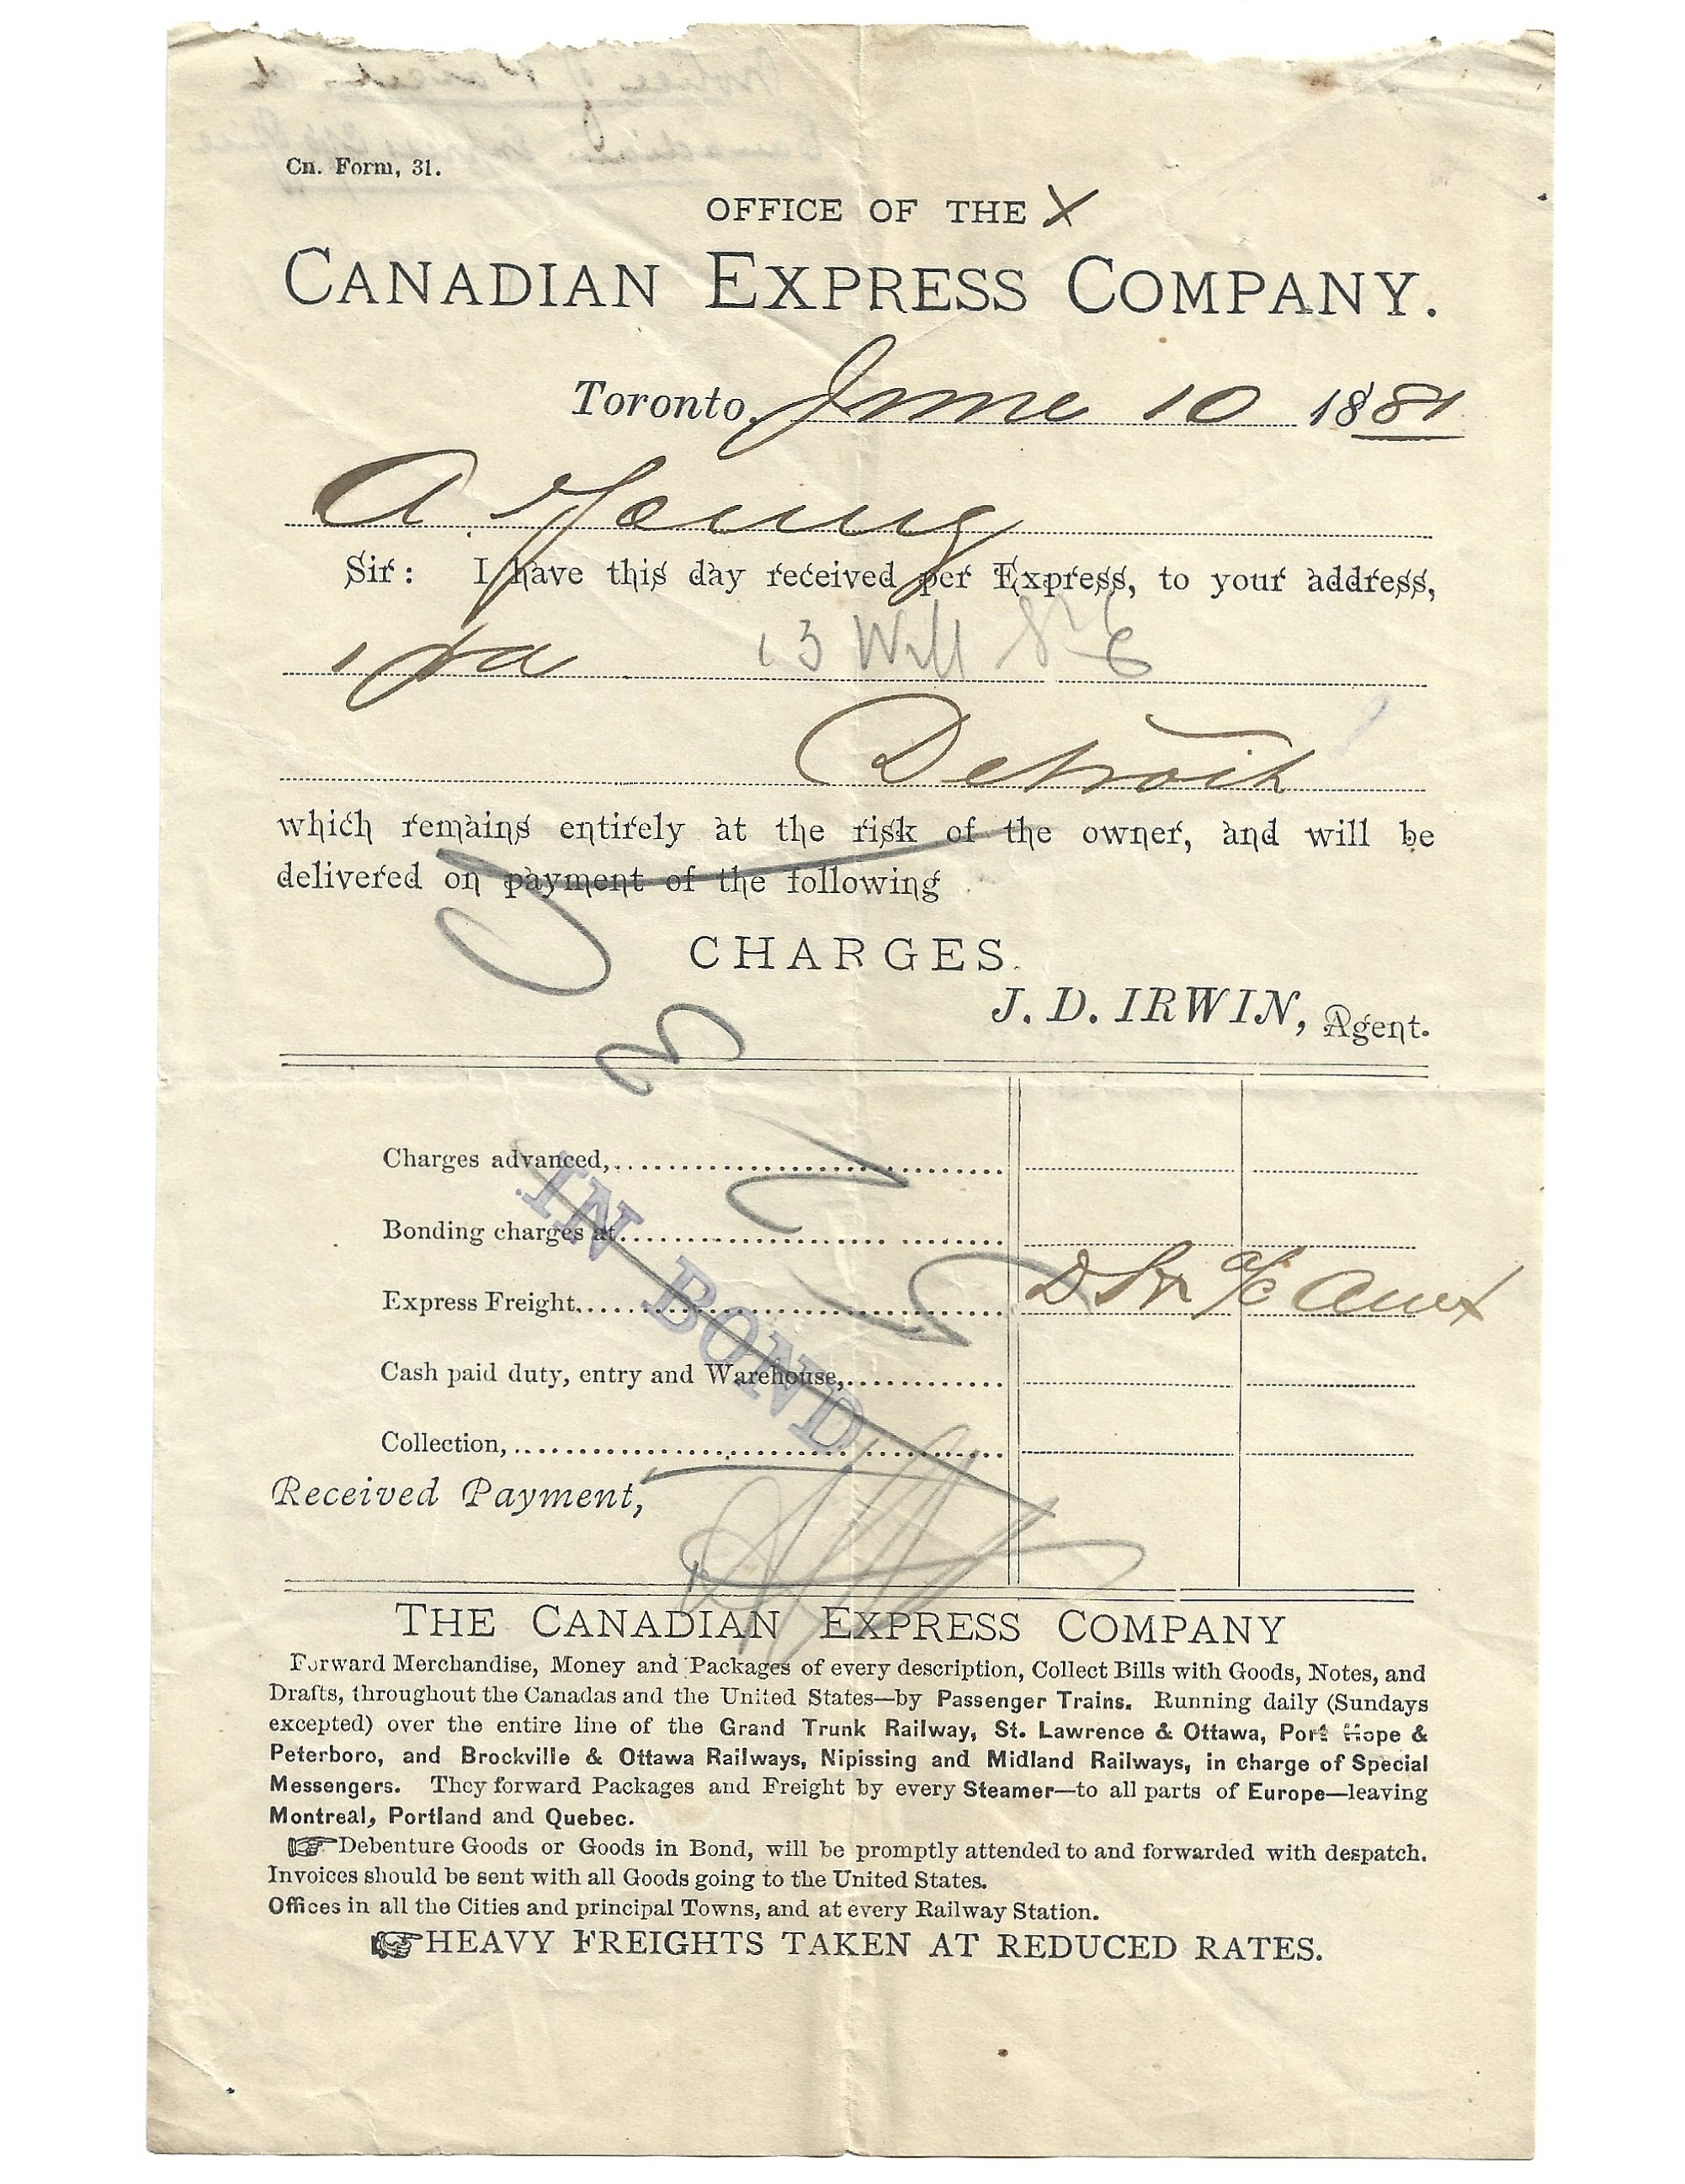 Cn. Form, 31.
OFFICE OF THE X
CANADIAN EXPRESS COMPANY.
Toronto, June 10 1881
A. Young
Sir: I have this day received per Express, to your address,
1 pa 13 Will St E
Detroit
which remains entirely at the risk of the owner, and will be
delivered on payment of the following
CHARGES.
J. D. IRWIN, Agent.
Charges advanced,
Bonding charges at
IN BOND
Express Freight, a/c
Cash paid duty, entry and Warehouse,
Collection,
Received Payment,
THE CANADIAN EXPRESS COMPANY
Forward Merchandise, Money and Packages of every description, Collect Bills with Goods, Notes, and
Drafts, throughout the Canadas and the United States—by Passenger Trains. Running daily (Sundays
excepted) over the entire line of the Grand Trunk Railway, St. Lawrence & Ottawa, Port Hope &
Peterboro, and Brockville & Ottawa Railways, Nipissing and Midland Railways, in charge of Special
Messengers. They forward Packages and Freight by every Steamer—to all parts of Europe—leaving
Montreal, Portland and Quebec.
☞Debenture Goods or Goods in Bond, will be promptly attended to and forwarded with despatch.
Invoices should be sent with all Goods going to the United States.
Offices in all the Cities and principal Towns, and at every Railway Station.
☞HEAVY FREIGHTS TAKEN AT REDUCED RATES.